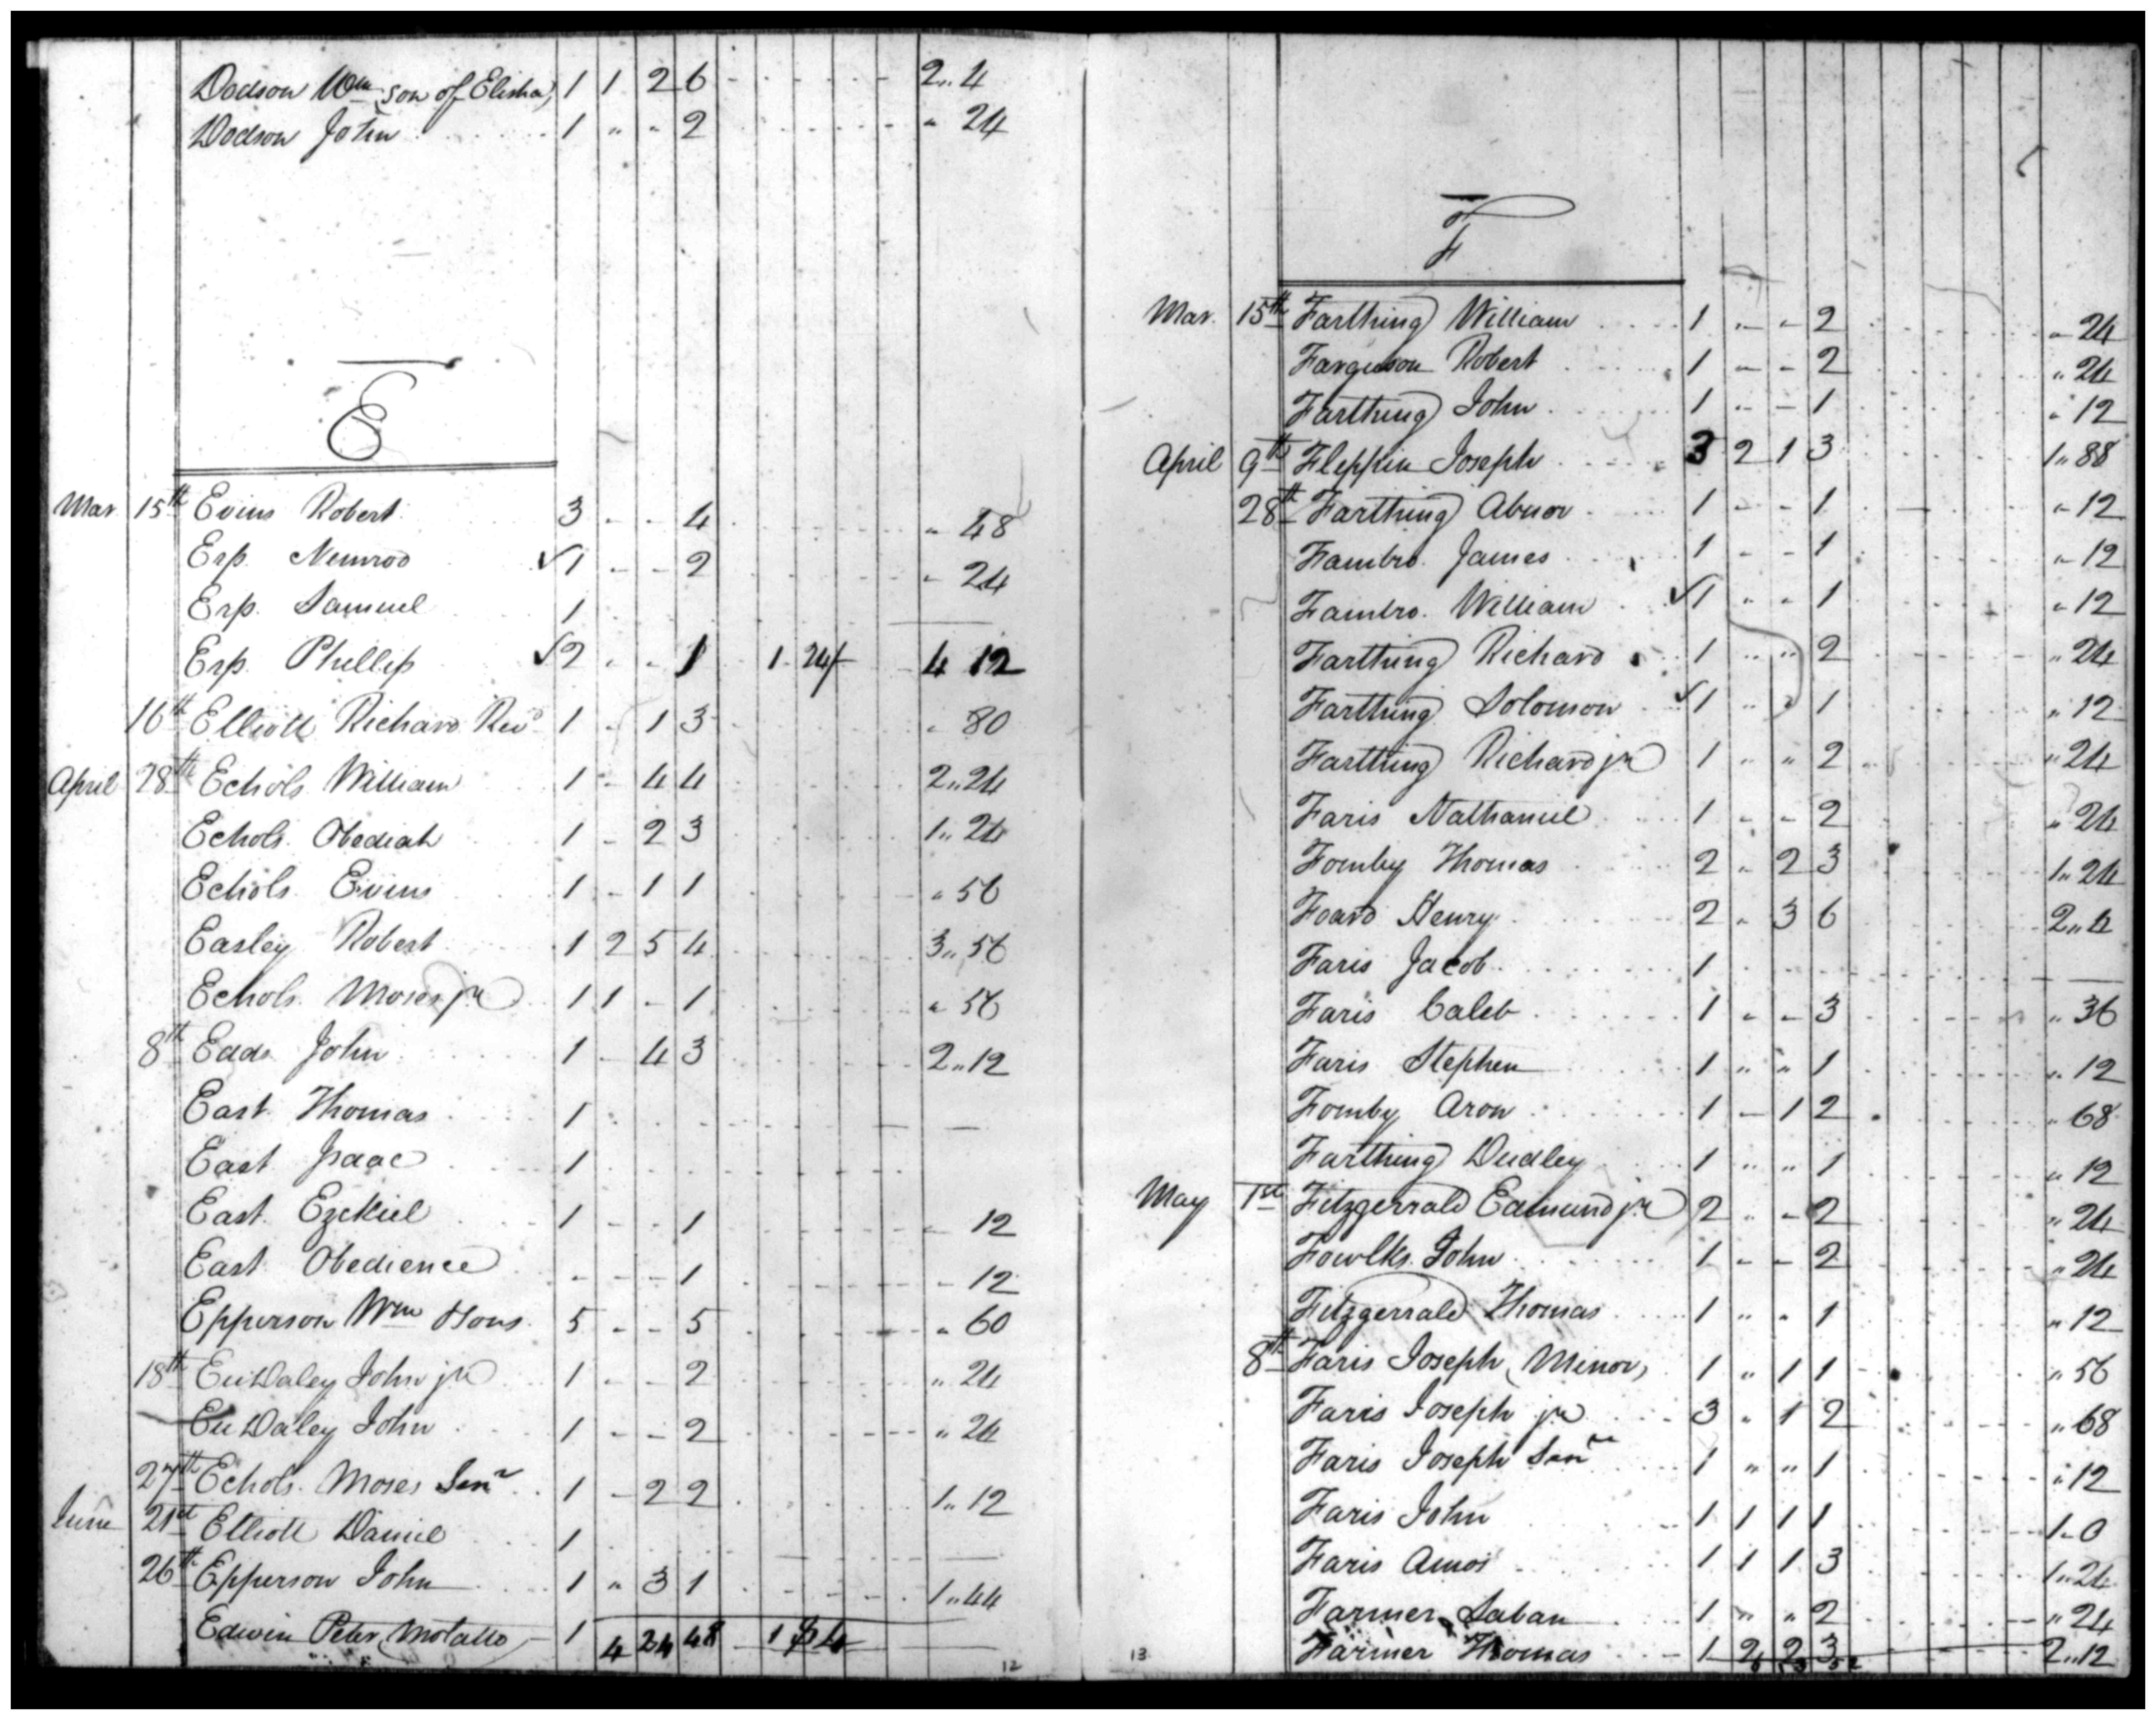 Dodson Wm son of Elisha, 1 1 2 6 2.. 4
Dodson John 1 " " 2 " 24
E
Mar. 15th Evins Robert 3 - - 4 " 48
Erp. Nemrod √1 - - 2 " 24
Erp. Samuel 1
Erp. Phillip √2 - - 1 1 24/ 4 12
16th Elliott Richard Revd 1 - 1 3 " 80
April 28th Echols William 1 - 4 4 2..24
Echols Obediah 1 - 2 3 1..24
Echols Evins 1 - 1 1 " 56
Easley Robert 1 2 5 4 3..56
Echols Moses jr 1 1 - 1 " 56
8th Eads John 1 - 4 3 2..12
East Thomas 1
East Isaac 1
East Ezekiel 1 - - 1 - 12
East Obedience - - - 1 - 12
Epperson Wm Hons. 5 - - 5 " 60
18th EuDaley John jr 1 - - 2 " 24
EuDaley John 1 - - 2 " 24
27th Echols Moses Senr 1 - 2 2 1..12
June 21st Elliott Daniel 1
26th Epperson John 1 " 3 1 1..44
Edwin Peter, Molatto, 1
4 24 48 1 $4
12
F
Mar. 15th Farthing William 1 - - 2 " 24
Farguson Robert 1 - - 2 " 24
Farthing John 1 - - 1 " 12
April 9th Fleppin Joseph 3 2 1 3 1..88
28th Farthing Abnor 1 - - 1 " 12
Fambro James 1 - - 1 " 12
Fambro William √1 " " 1 " 12
Farthing Richard 1 " " 2 " 24
Farthing Solomon √1 " " 1 " 12
Farthing Richard jr 1 " " 2 " 24
Faris Nathaniel 1 - - 2 " 24
Fomby Thomas 2 " 2 3 1..24
Foard Henry 2 " 3 6 2..4
Faris Jacob 1
Faris Caleb 1 - - 3 " 36
Faris Stephen 1 " " 1 " 12
Fomby Aron 1 - 1 2 " 68
Farthing Dudley 1 " " 1 " 12
May 1st Fitzgerrald Edmund jr 2 " - 2 " 24
Fowlks John 1 - - 2 " 24
Fitzgerrald Thomas 1 " " 1 " 12
8th Faris Joseph (Minor) 1 " 1 1 " 56
Faris Joseph jr 3 " 1 2 " 68
Faris Joseph Senr 1 " " 1 " 12
Faris John 1 1 1 1 1..0
Faris Amos 1 1 1 3 1..24
Farmer Laban 1 " " 2 " 24
Farmer Thomas 1 2 2 3 2..12
13